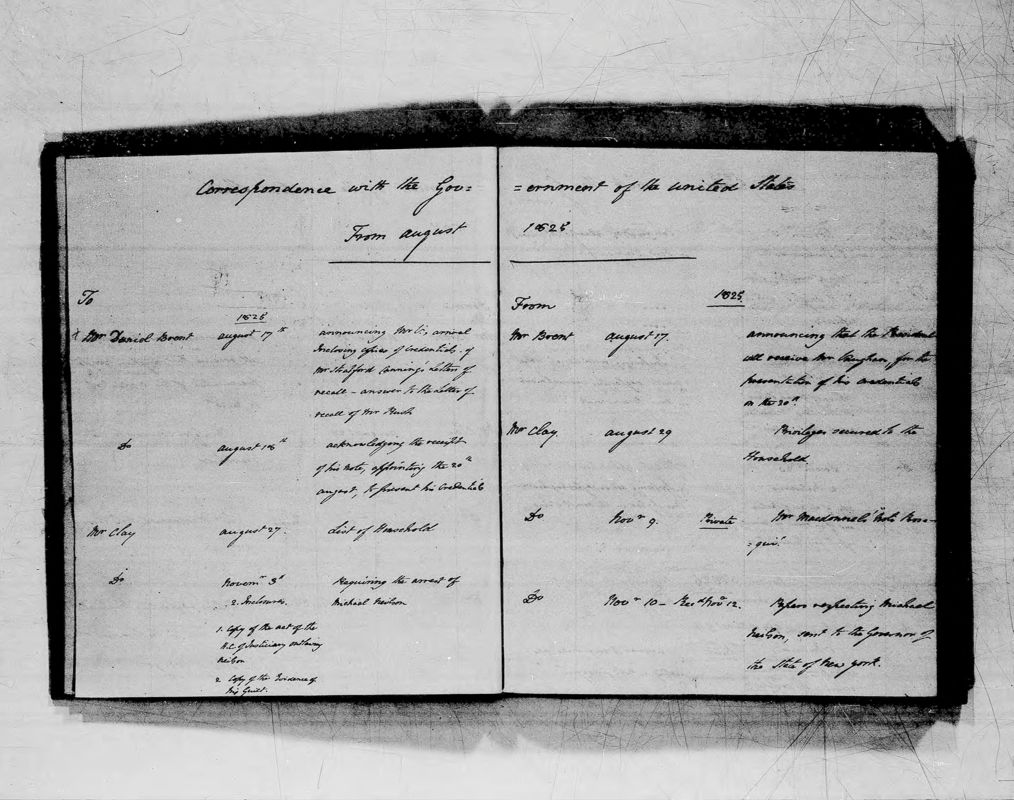 Correspondence with the Gov=
From August
To
1825
x Mr Daniel Brent August 17th announcing Mr V's arrival
Inclosing copies of Credentials, of
Mr Stratford Canning's Letter of
recall - answer to the Letter of
recall of Mr Rush
Do August 18th acknowledging the receipt
of his note, appointing the 20th
August, to present his Credentials
Mr Clay August 27. List of Household
Do Novemr 3d Requiring the arrest of
2. Inclosures. Michael Neilson
1. Copy of the act of the
H.C. of Justiciary outlawing
Neilson
2 Copy of the Evidence of
his Guilt.
=ernment of the United States
1825
From
1825
Mr Brent August 17. announcing that the President
will receive Mr Vaughan, for the
presentation of his Credentials
on the 20th
Mr Clay. August 29 Privileges secured to the
Household
Do Novr 9. Private Mr Macdonnel's Note
Do Novr 10 - Recd Novr 12. Papers respecting Michael
Neilson, sent to the Governor of
the State of New York.